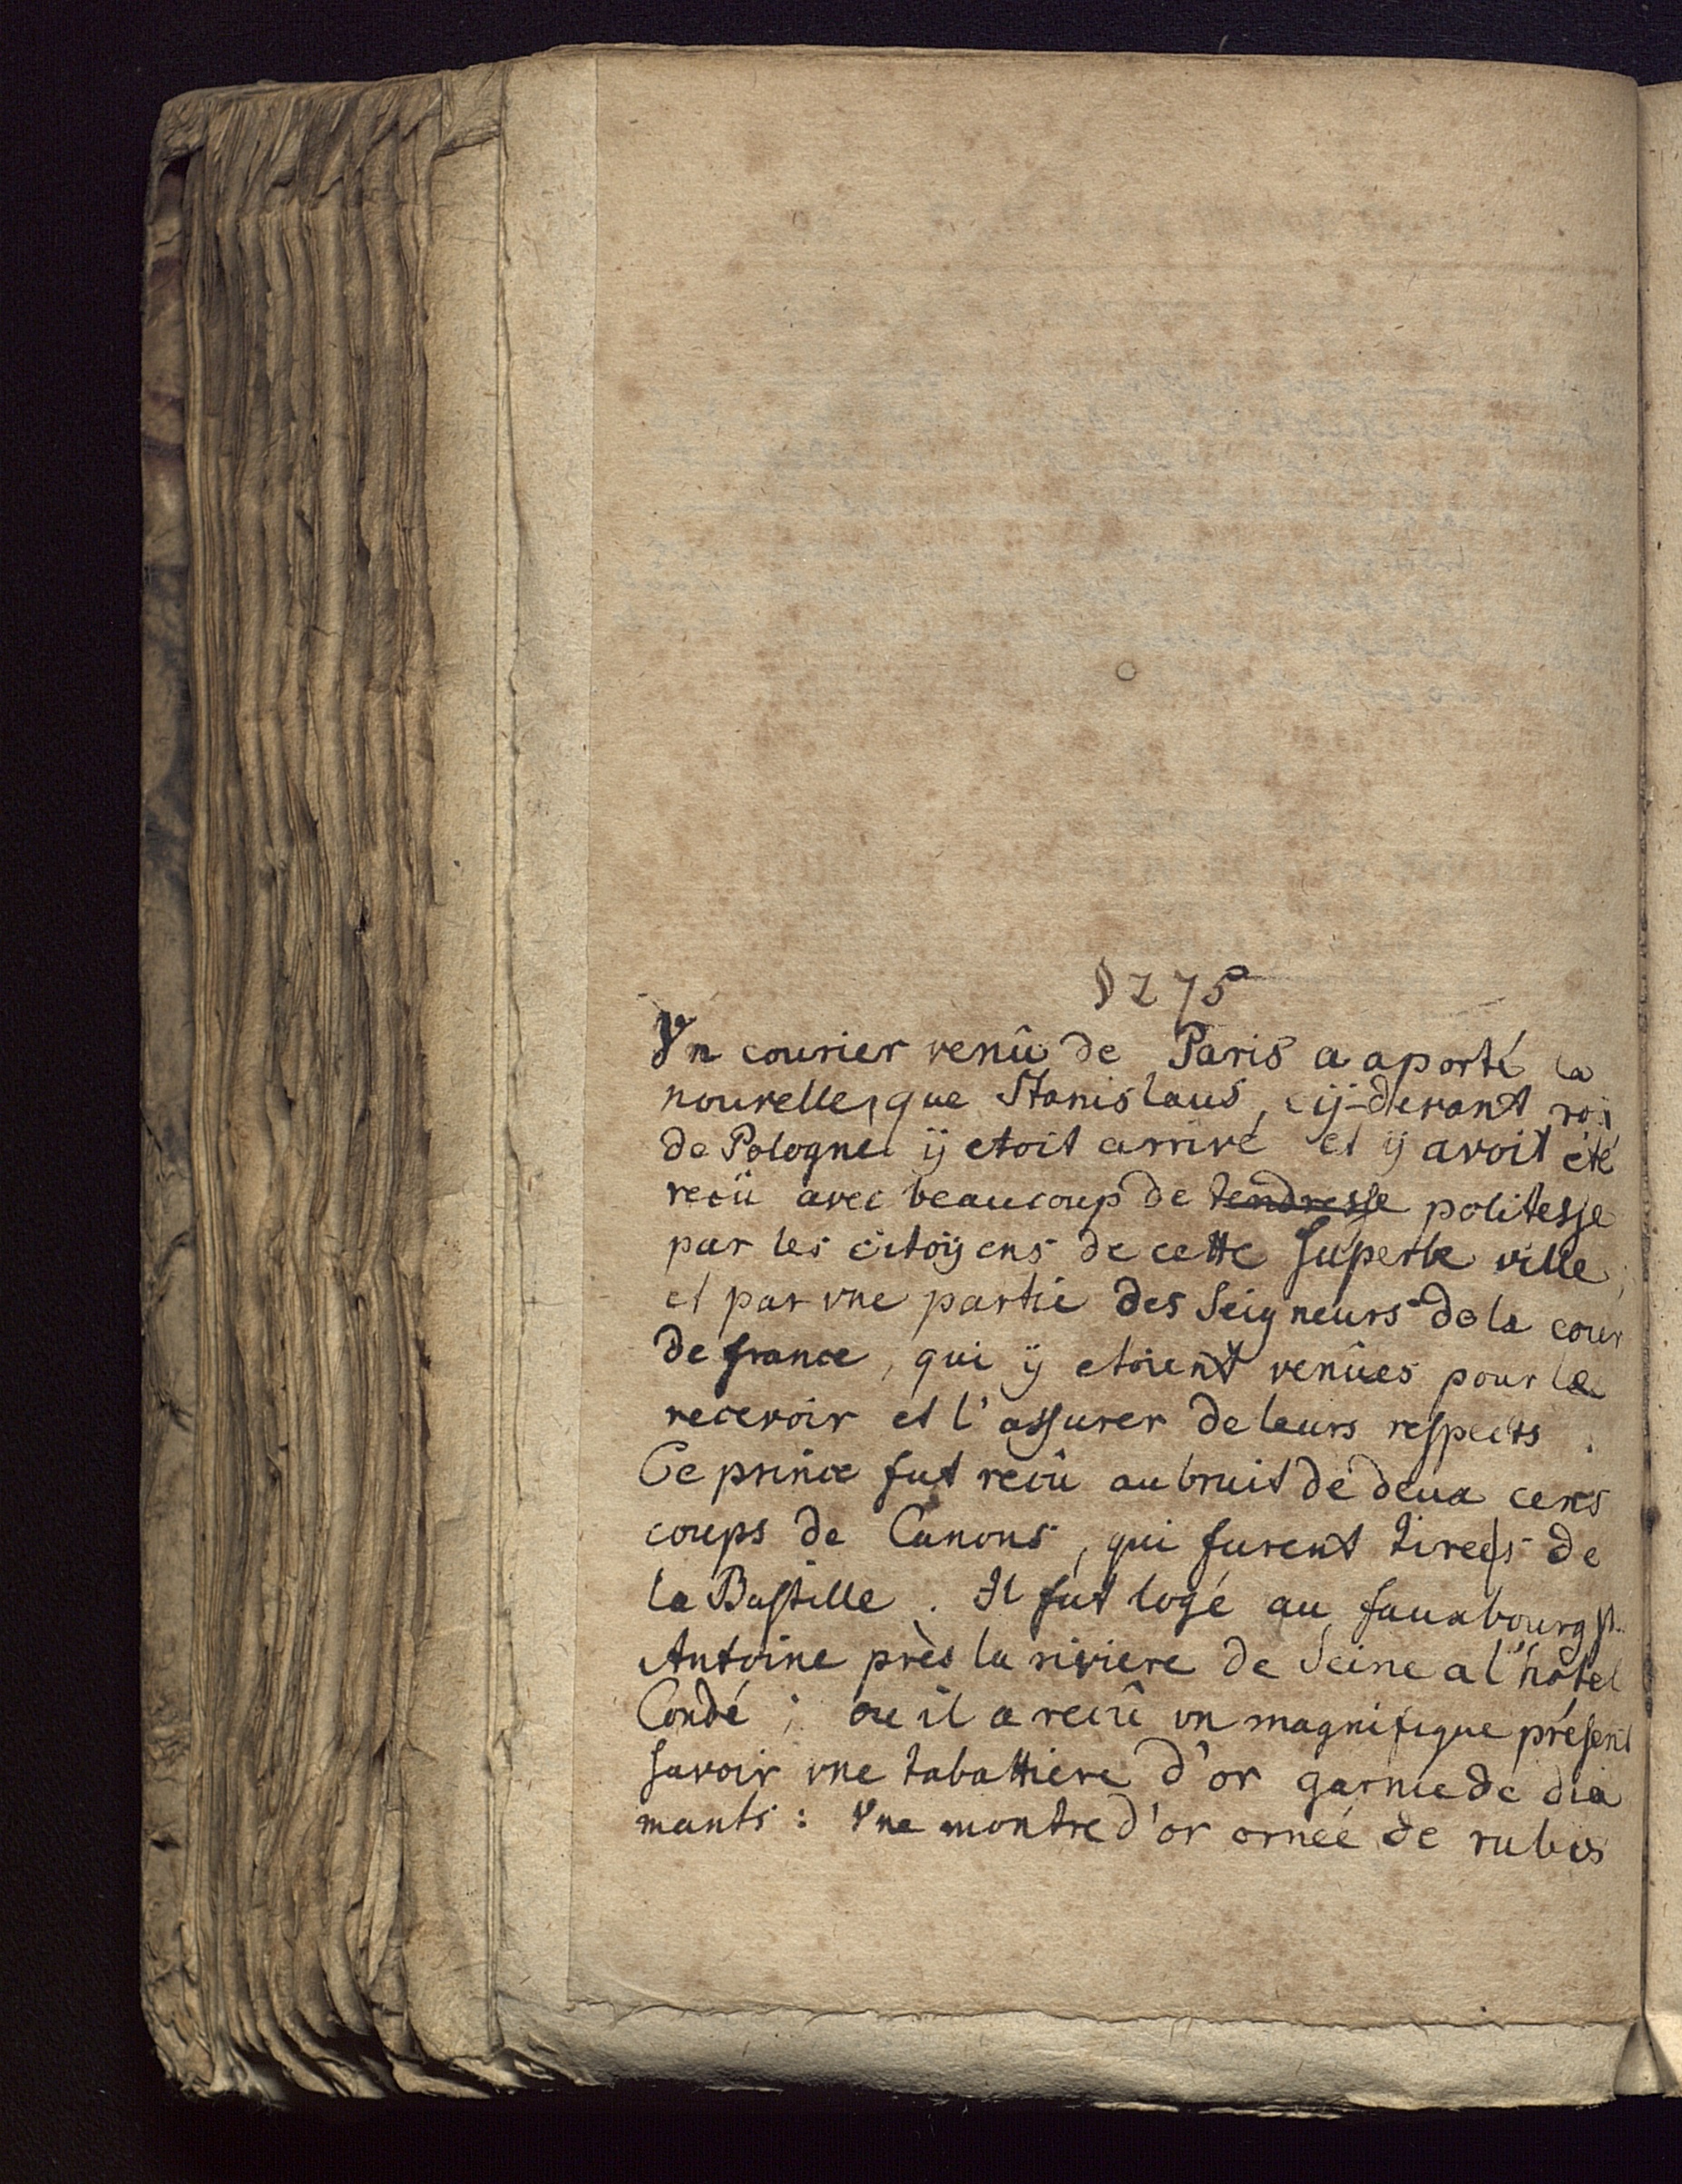 § 275
Vn courier venû de Paris a aporté la
nouvelle, que Stanislaus, cÿ-devant roi
de Pologne ÿ etoit arrivé et ÿ avoit été
recü avec beaucoup de tendresse politesse
par les citoÿens de cette superbe ville,
et par vne partie des Seigneurs de la cour
de france, qui ÿ etoient venûes pour le
recevoir et l'assurer de leurs respects.
Ce prince fut recû au bruit de deux cens
coups de Canons, qui furent tirees de
la Bastille. Il fut logé au fauxbourg St.
Antoine près la riviere de Seine a l'hôtel
Condé; ou il a recû vn magnifique présent
savoir vne tabattiere d'or garnie de dia
mants: Vne montre d'or ornée de rubis